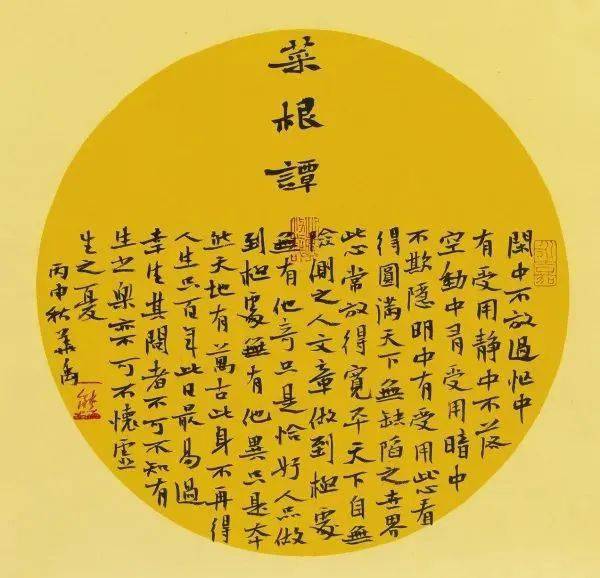 菜根譚
閑中不放過忙中
有受用静中不落
空動中有受用暗中
不欺隱明中有受用此心看
得圓滿天下無缺陷之世界
此心常放得寬平天下自無
險側之人文章做到極處
無有他奇只是恰好人品做
到極處無有他異只是本
然天地有萬古此身不再得
人生只百年此日最易過
幸生其間者不可不知有
生之樂亦不可不懷虛
生之憂
丙申秋